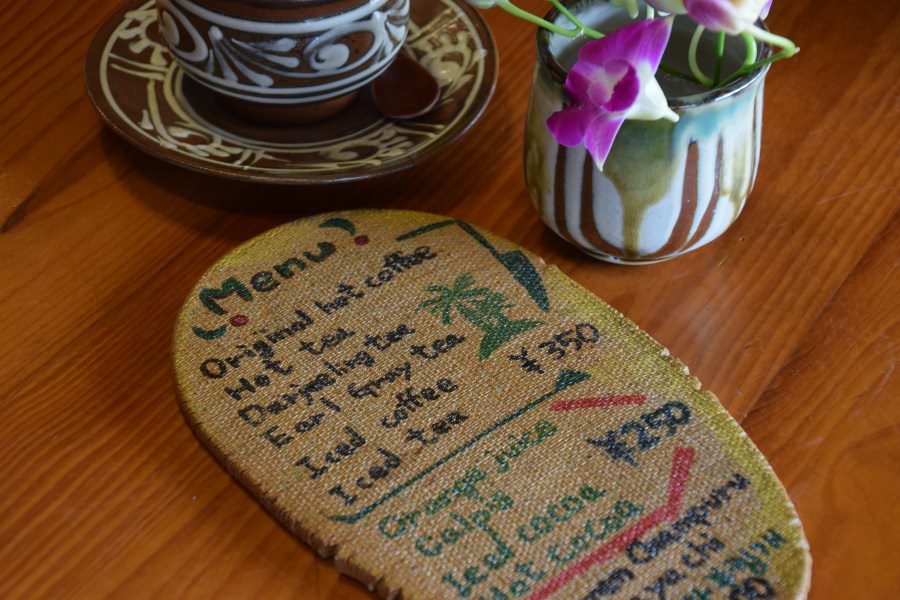 Menu
Original hot coffee
Hot tea
Darjeeling tea
Earl Gray tea
Iced coffee
Iced tea
¥350
Orange juice
Calpis
Iced cocoa
Hot cocoa
¥250
Champuru